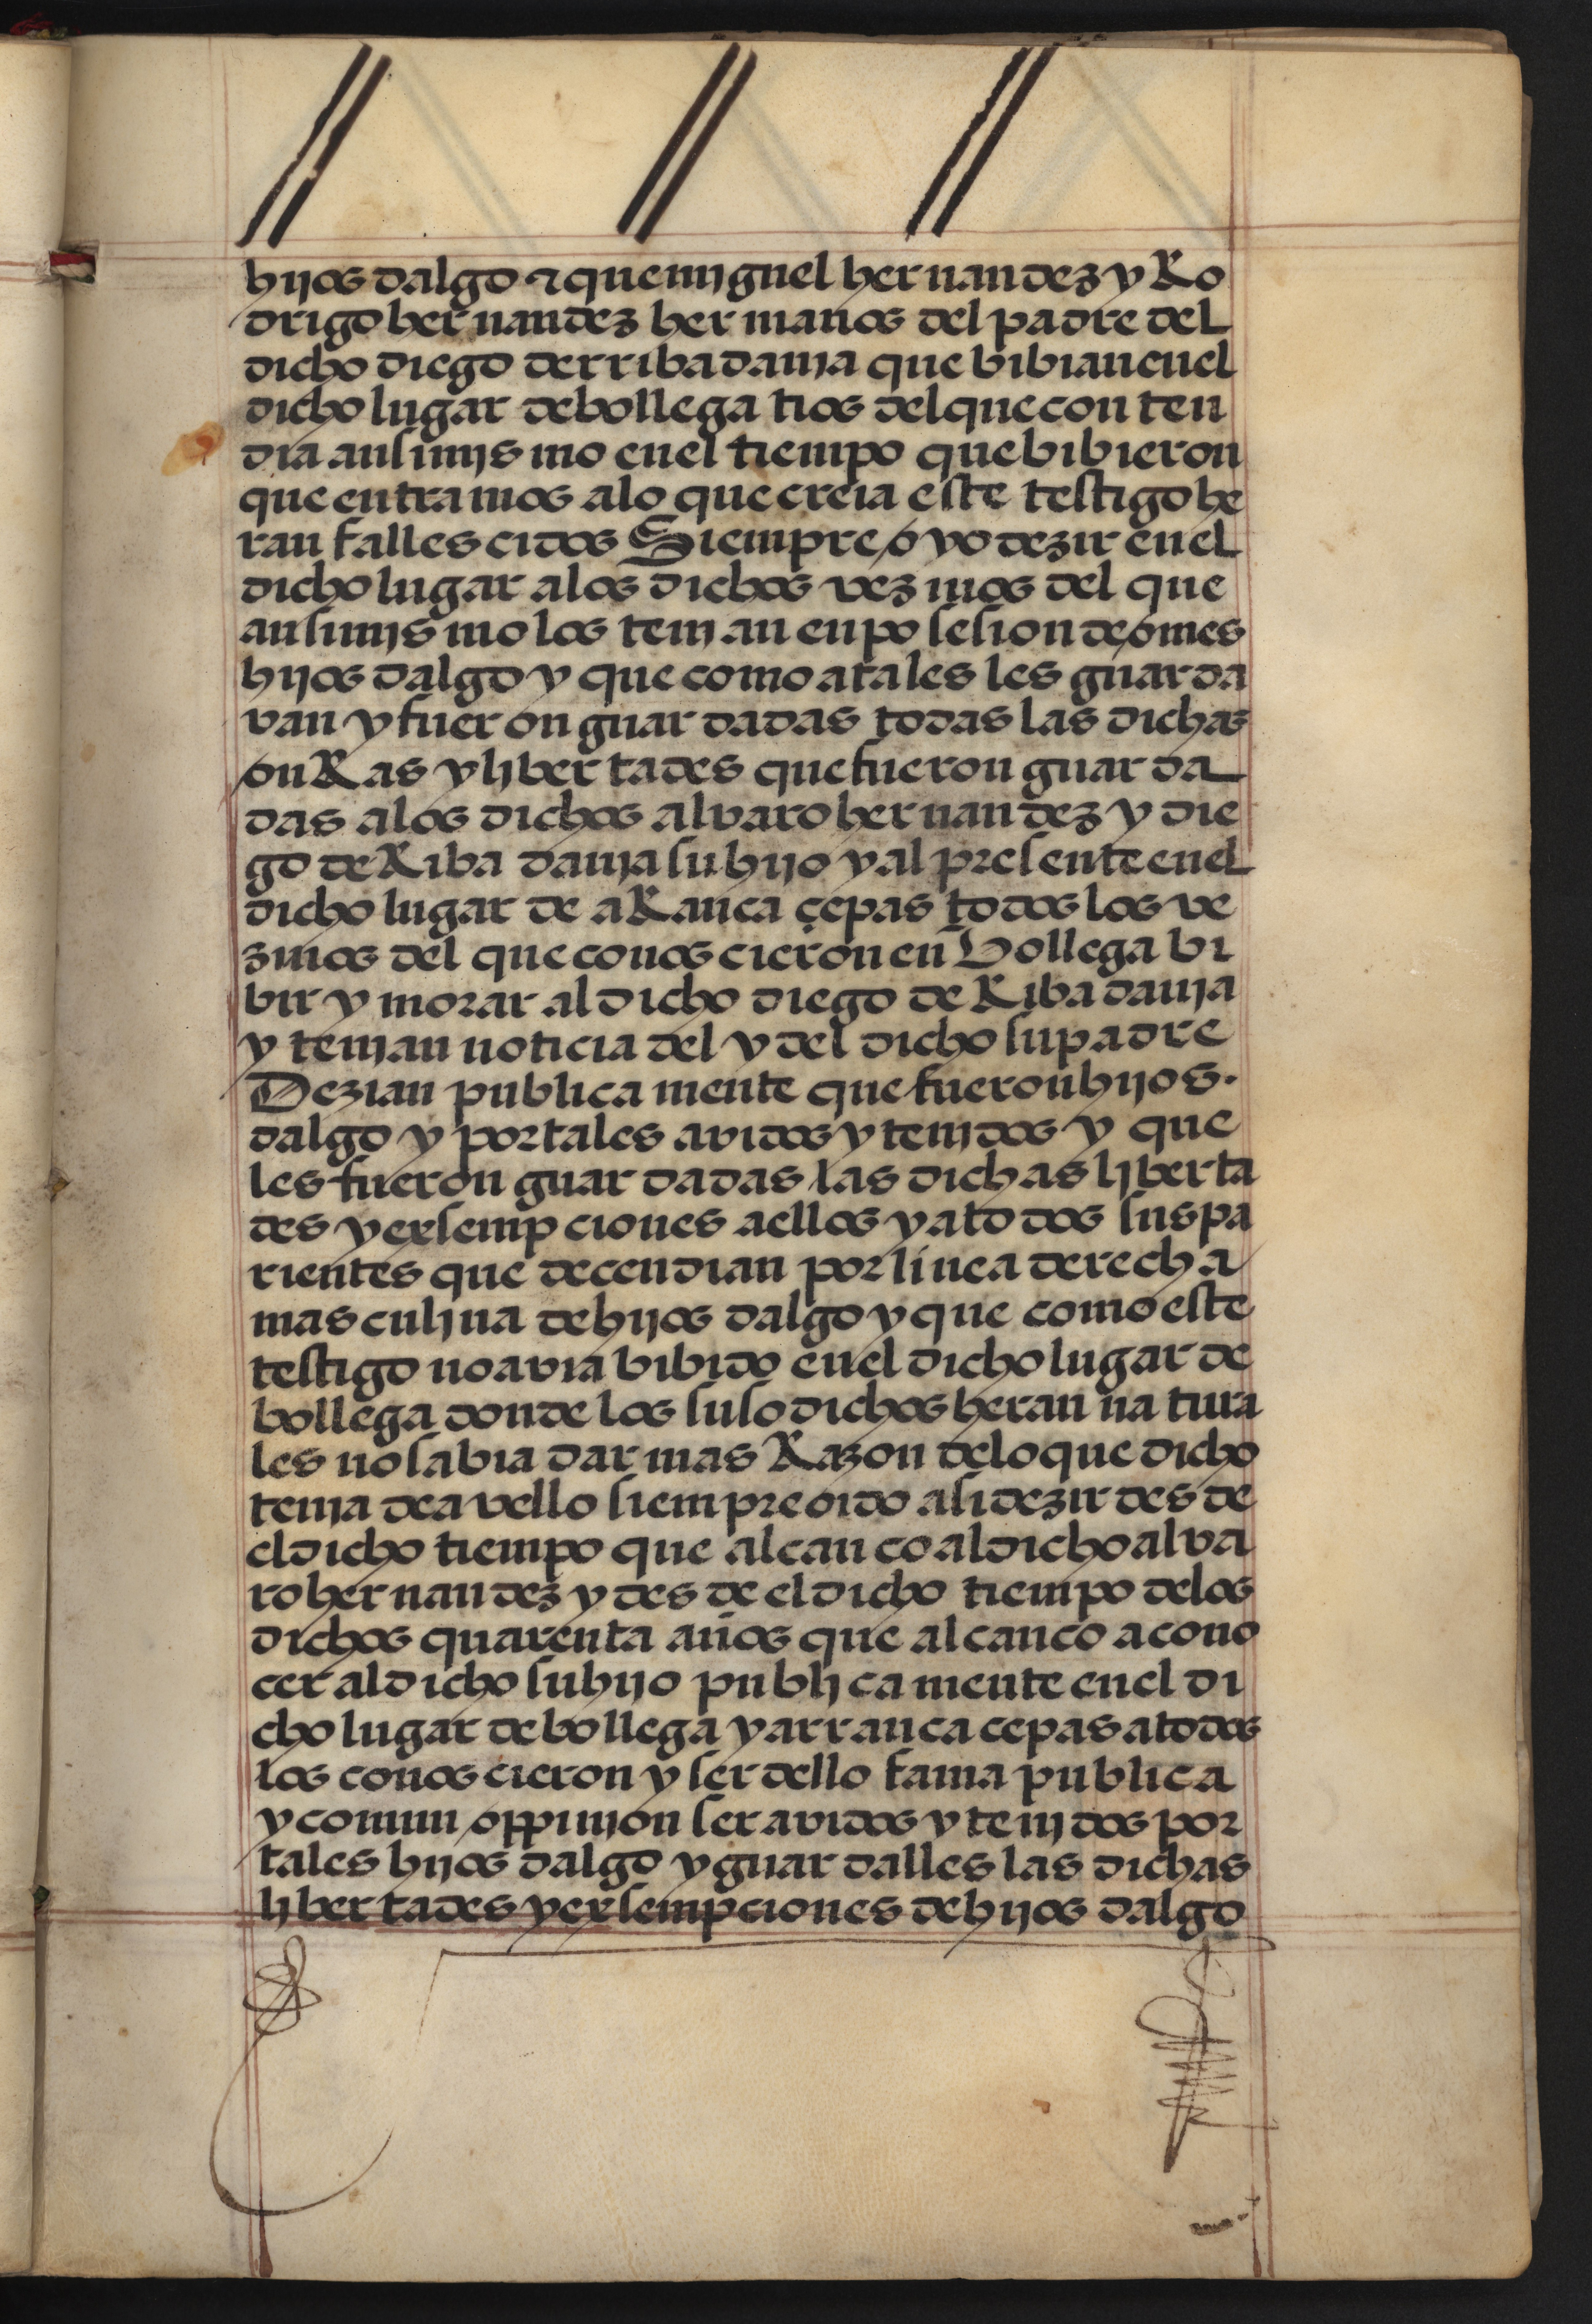 hijos dalgo ⁊ que mjguel hernandez y Ro
drigo hernandez hermanos del padre del
dicho diego derribadauja que bibian enel
dicho lugar debollega tios delque conten
dia ansimjsmo enel tiempo quebibieron
que entramos alo que creia este testigo he
ran fallescidos Siempre oyo dezir enel
dicho lugar alos dichos vezinos del que
ansimjsmo los tenjan enposesion deomes
hijos dalgo y que como atales les guarda
van y fueron guardadas todas las dichas
onRas yljbertades quefueron guarda
das alos dichos alvaro hernandez y die
go deRiba dauja su hijo y al presente enel
dicho lugar de aRanca çepas todos los ve
zinos del que conoscieron en Bollega bi
bir y morar al dicho diego de Ribadauja
y tenjan noticia del y del dicho su padre
Dezian publicamente que fueron hijos.
dalgo y por tales avidos y tenjdos y que
les fueron guardadas las dichas ljberta
des yexsempciones aellos yatodos sus pa
rientes que decendian por linea derecha
masculjna dehijos dalgo y que como este
testigo noavia bibido enel dicho lugar de
bollega donde los susodichos heran natura
les nosabia dar mas Razon delo que dicho
tenja deavello siempre oido asi dezir desde
el dicho tiempo que alcanco aldicho alva
ro hernandez y desde el dicho tiempo delos
dichos quarenta años que alcanco acono
cer aldicho suhijo publjcamente enel di
cho lugar debollega y arranca cepas atodos
los conoscieron y ser dello fama publica
y comun oppinion ser avidos y tenjdos por
tales hijos dalgo y guardalles las dichas
ljbertades yexsempciones dehijos dalgo